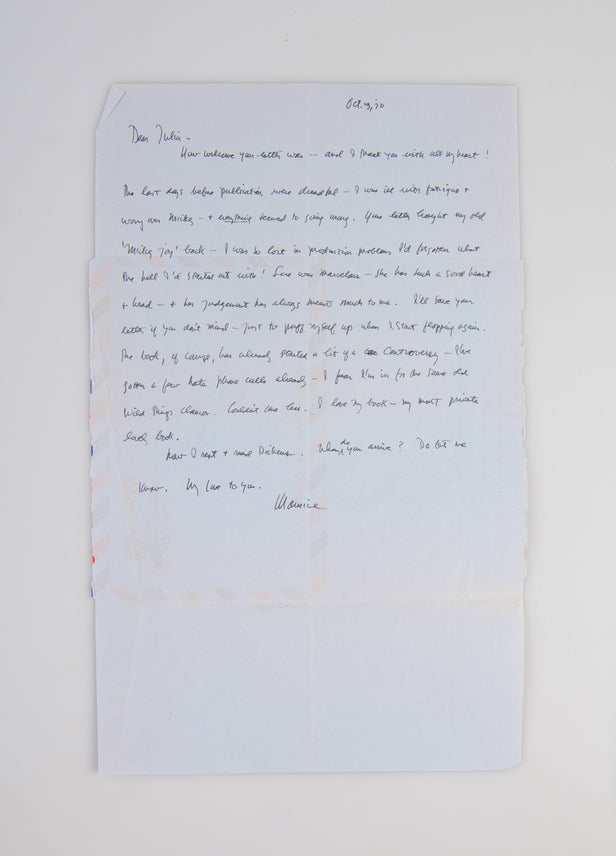 Oct. 19, '70
Dear Julia -
How welcome your letter was — and I thank you with all my heart!
The last days before publication were dreadful — I was ill with fatigue +
worry over Mickey — + everything seemed to going away. Your letter brought my old
'Mickey joy' back — I was so lost in production problems I'd forgotten what
the hell I'd started out with! Lore was marvelous — she has such a good heart
+ head — + her judgement has always meant much to me. I'll save your
letter if you don't mind — just to puff myself up when I start flopping again.
The book, of course, has already started a bit of a controversy — I've
gotten a few hate phone calls already — I fear I'm in for the same old
Wild Things clamor. Couldn't care less. I love my book — my most private
lovely book.
Now I rest + read Dickens. When do you arrive? Do let me
know. My love to you.
Maurice